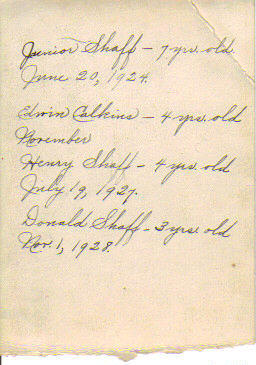 Junior Shaff – 7 yrs. old.
June 20, 1924.
Edwin Calkins – 4 yrs. old
November
Henry Shaff – 4 yrs. old
July 19, 1927.
Donald Shaff – 3 yrs. old
Nov. 1, 1928.